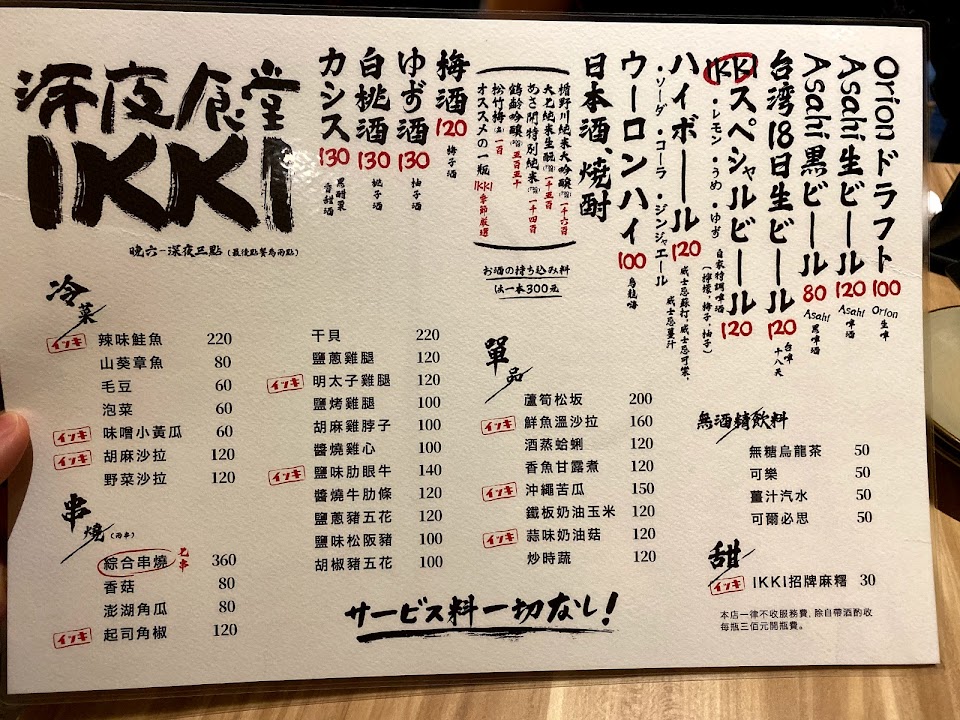 深夜食堂
IKKI
晚六-深夜三點(最後點餐為兩點)
Orionドラフト 100 Orion 生啤
Asahi生ビール 120 Asahi 啤酒
Asahi黒ビール 80 Asahi 黑啤酒
台湾18日生ビール 120 台啤十八天
IKKIスペシャルビール 120
・レモン・うめ・ゆず 自家特調啤酒(檸檬,梅子,柚子)
ハイボール 120 威士忌蘇打,威士忌可樂,威士忌薑汁
・ソーダ・コーラ・ジンジャエール
ウーロンハイ 100 烏龍嗨
日本酒、焼酎
楯野川純米大吟醸 一千六百
大七純米生酛 一千五百
あさ開特別純米 一千四百
鶴齢吟醸 五百五十
松竹梅 一百
オススメの一瓶 IKKI 季節嚴選
お酒の持ち込み料
は一本300元
梅酒 120 梅子酒
ゆず酒 130 柚子酒
白桃酒 130 桃子酒
カシス 130 黑醋栗香甜酒
冷菜
インキ 辣味鮭魚 220
山葵章魚 80
毛豆 60
泡菜 60
インキ 味噌小黃瓜 60
インキ 胡麻沙拉 120
野菜沙拉 120
串燒(兩串)
綜合串燒 七串 360
香菇 80
澎湖角瓜 80
インキ 起司角椒 120
干貝 220
鹽蔥雞腿 120
インキ 明太子雞腿 120
鹽烤雞腿 100
胡麻雞脖子 100
醬燒雞心 100
インキ 鹽味肋眼牛 140
醬燒牛肋條 120
鹽蔥豬五花 120
鹽味松阪豬 100
胡椒豬五花 100
單品
蘆筍松坂 200
インキ 鮮魚溫沙拉 160
酒蒸蛤蜊 120
香魚甘露煮 120
インキ 沖繩苦瓜 150
鐵板奶油玉米 120
インキ 蒜味奶油菇 120
炒時蔬 120
無酒精飲料
無糖烏龍茶 50
可樂 50
薑汁汽水 50
可爾必思 50
甜
インキ IKKI招牌麻糬 30
サービス料一切なし!
本店一律不收服務費, 除自帶酒酌收
每瓶三佰元開瓶費。